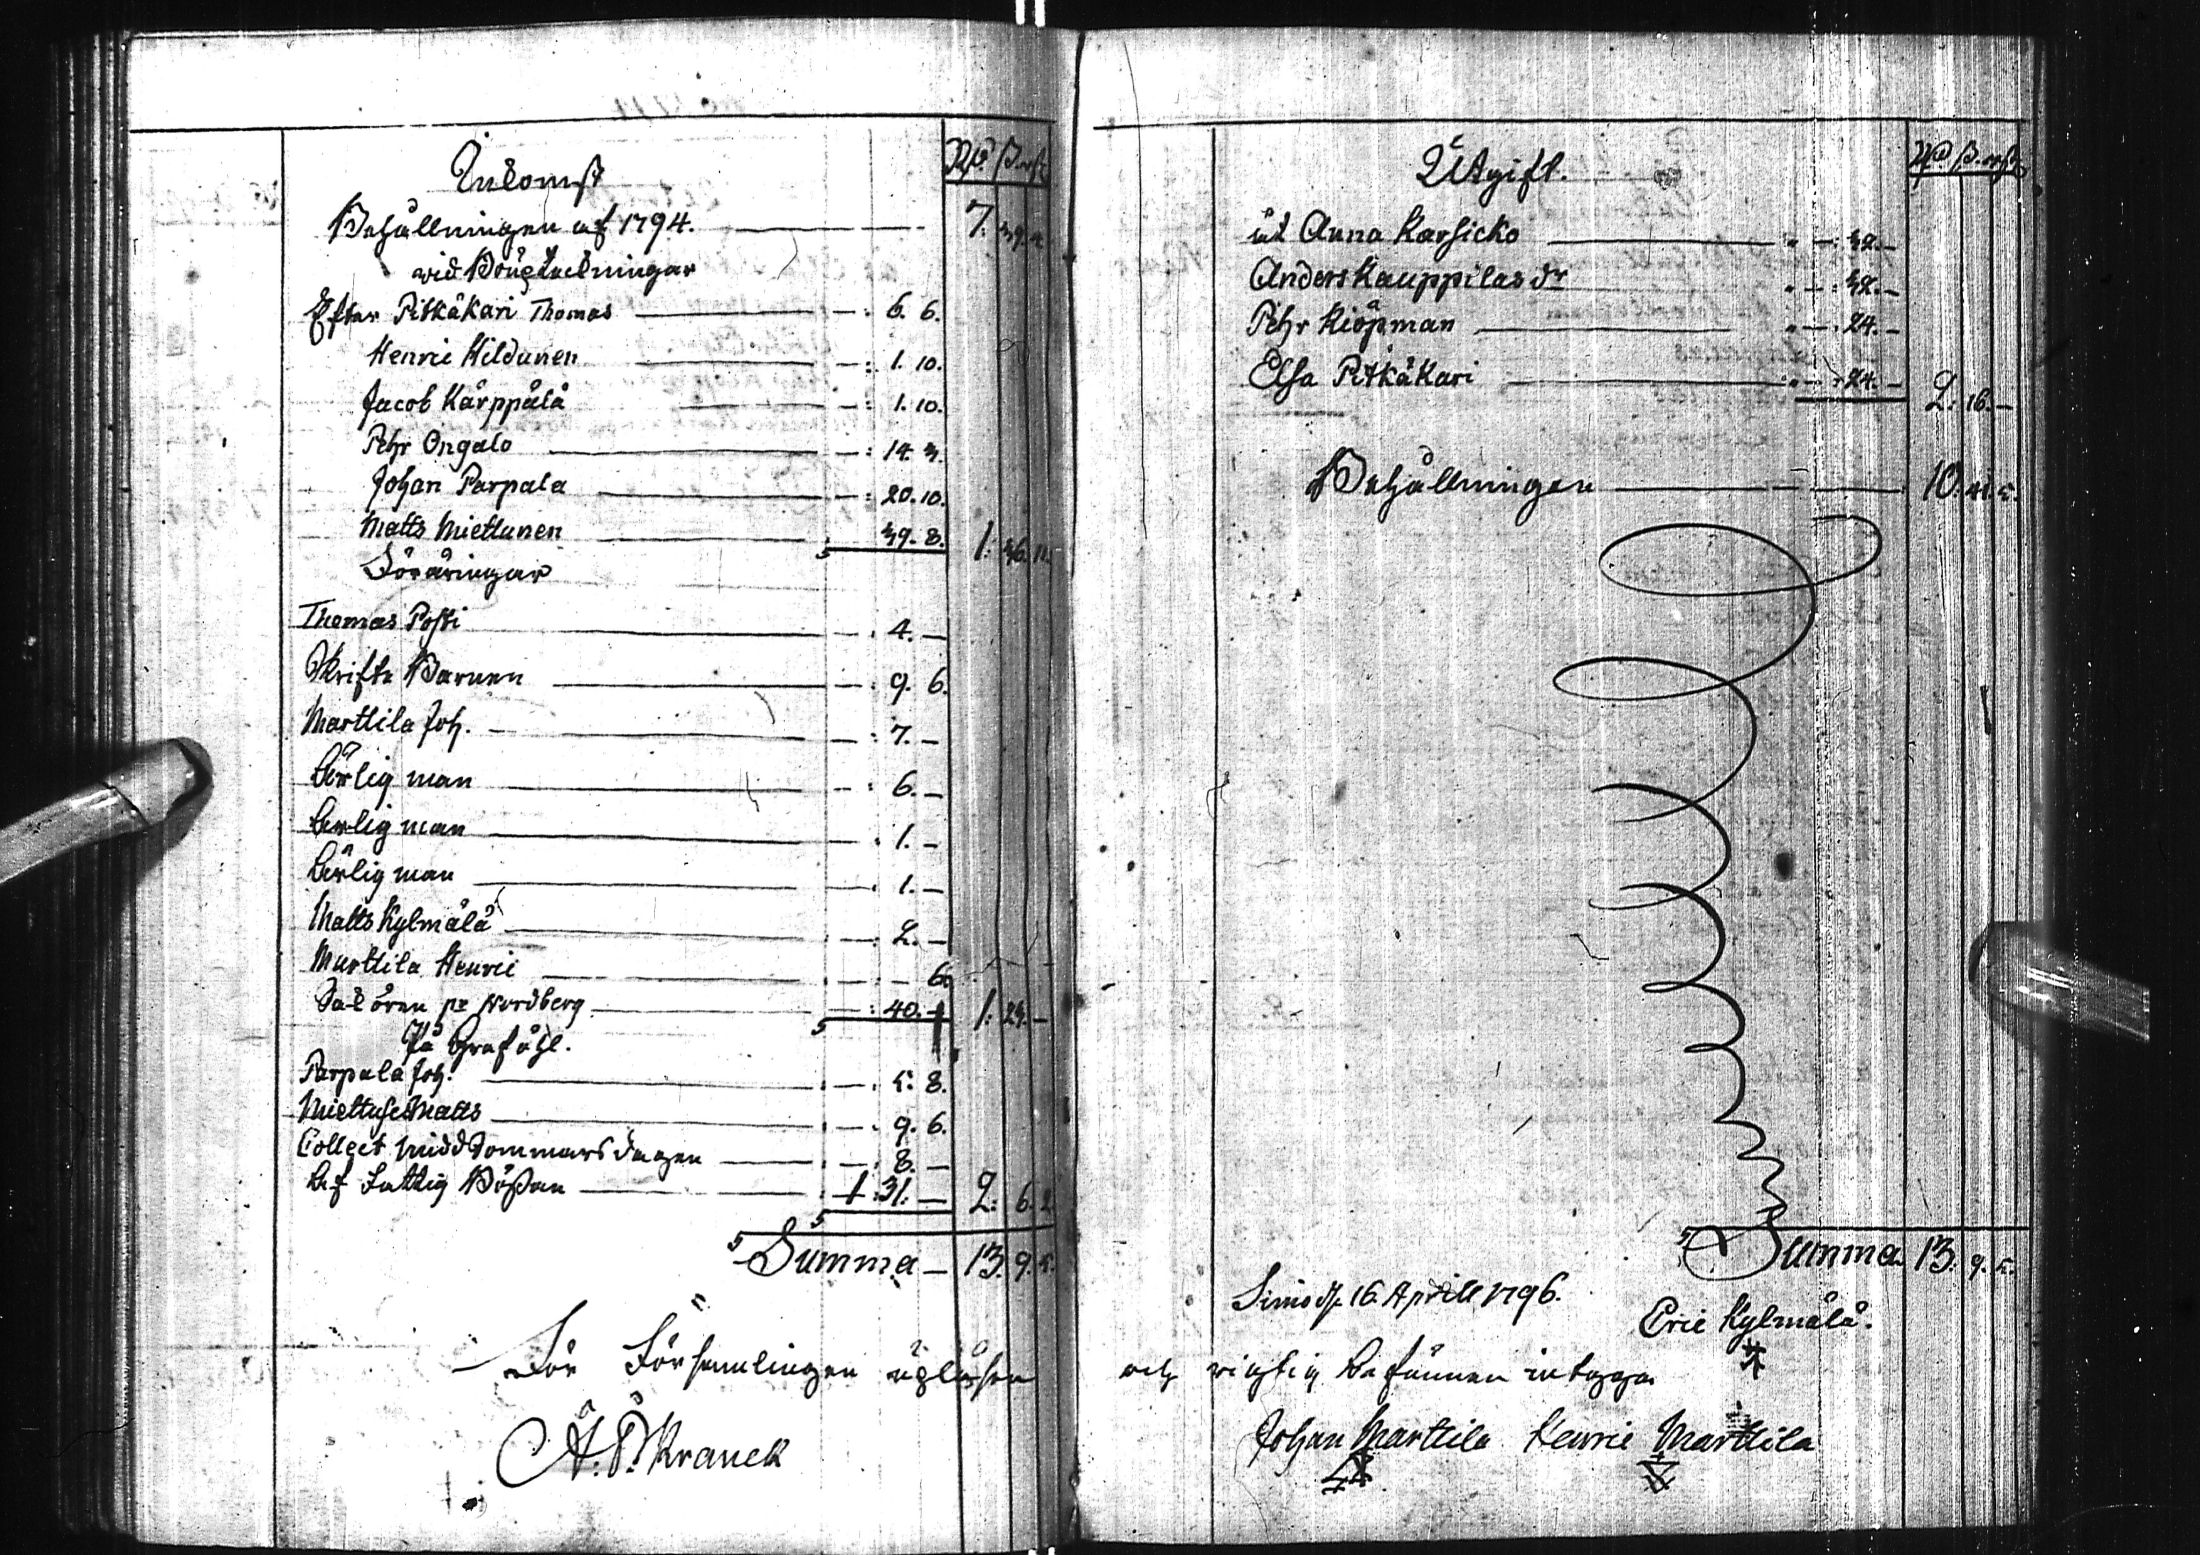 Inkomst Rd ß. rst
Behållningen af 1794. 7. 39. 4
wid Bouptäckningar
Efter Pitkäkari Thomas 6. 6.
Henric Hildunen 1. 10.
Jacob Kärppälä 1. 10.
Pehr Ongalo 14. 3.
Johan Parpala 20. 10.
Matts Miettunen 39. 8. 1. 36. 11.
Föräringar
Thomas Possi 4. —
Skrifte Barnen 9. 6.
Marttila Joh. 7. —
Ärlig man 6. —
Ärlig man 1. —
Ärlig man 1. —
Matts Kylmälä 2. —
Marttila Henric — 6.
Sakören pr Nordberg 40. — 1. 23. —
På Grafööl.
Parpala Joh. 5. 8.
Miettuset Matts 9. 6.
Collect Midd Sommars dagen 8. —
Af Fattig Bößan 1. 31. — 2. 6. 2
Summa 13. 9. 5.
För Församlingen upläsen
A. P. Kranck
Utgift. Rd ß. rst
åt Anna Karsicko 32. —
Anders Kauppilas dr 32. —
Pehr Kiöpman 24. —
Elsa Pitkäkari 24. — 2. 16. —
Behållningen 10. 41. 5.
Summa 13. 9. 5.
Simo d. 16. Aprill 1796.
Eric Kylmälä.
och richtig befunnen intyga
Johan Marttila Henric Marttila